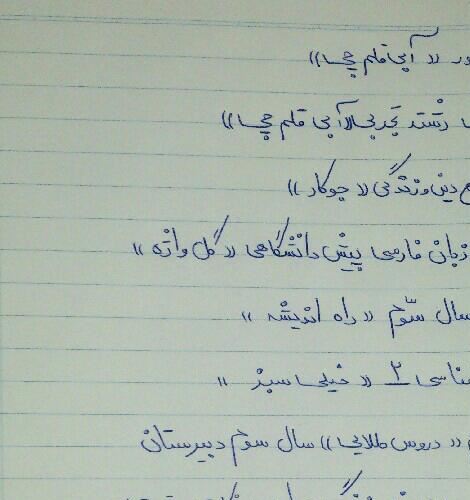 «آبی قلم چی»
رشته تجربی «آبی قلم چی»
دین و زندگی «جوکار»
زبان فارسی پیش دانشگاهی «گل واژه»
سال سوّم «راه اندیشه»
۲ «خیلی سبز»
«دروس طلایی» سال سوم دبیرستان